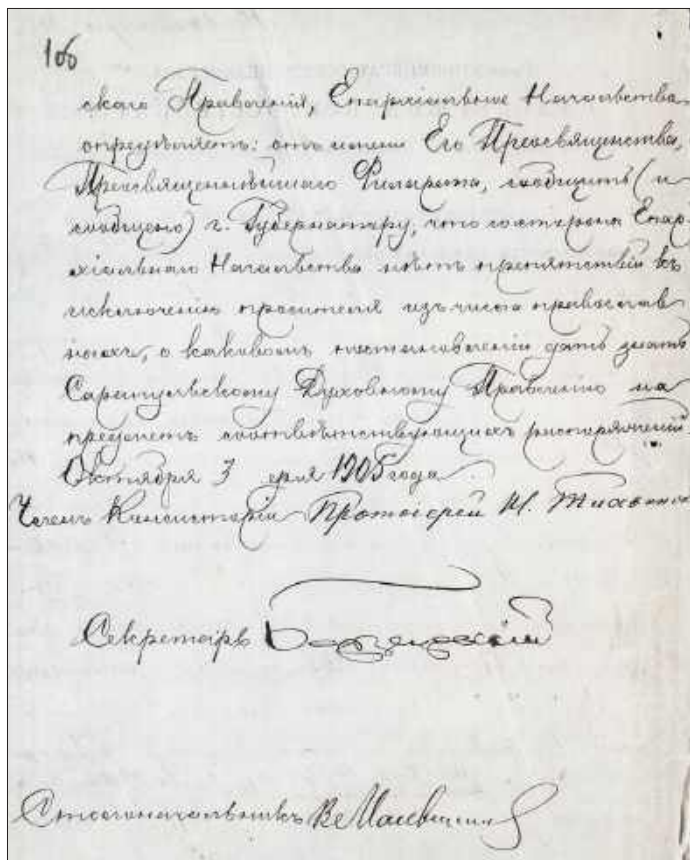 106
скаго Правленія, Епархіальное Начальство
опредѣляетъ: отъ имени Его Преосвященства,
Преосвященнѣйшаго Филарета, сообщить (и
сообщено) г. Губернатору, что со стороны Епар
хіальнаго Начальства нѣтъ препятствій къ
исключенію просителя изъ числа православ
ныхъ, о каковомъ постановленіи дать знать
Сарапульскому Духовному Правленію на
предметъ соотвѣтствующихъ распоряженій.
Октября 3 дня 1905 года.
Членъ Консисторіи Протоіерей И.
Секретарь
Столоначальникъ